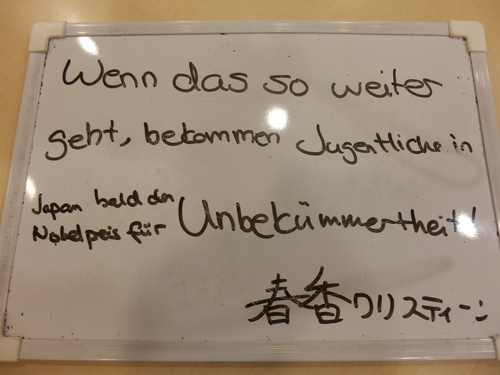 Wenn das so weiter
geht, bekommen Jugentliche in
Japan bald den
Nobelpeis für Unbekümmertheit!
春香クリスティーン